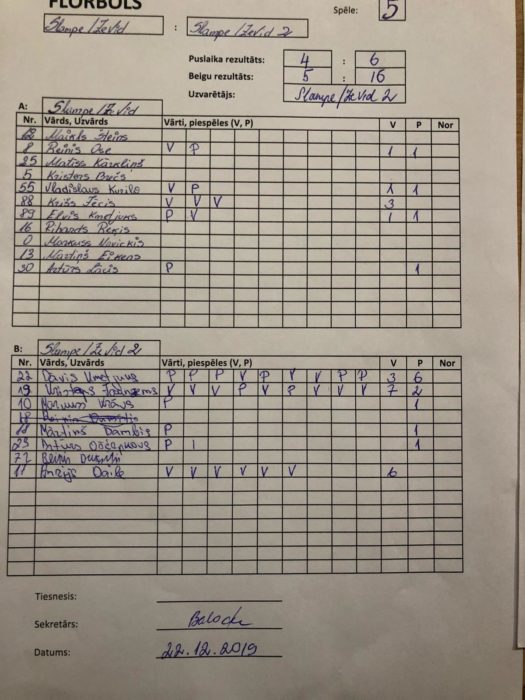 FLORBOLS
Spēle: 5
Slampe/Zevid : Slampe/Zevid 2
Puslaika rezultāts: 4 : 6
Beigu rezultāts: 5 : 16
Uzvarētājs: Slampe/Zevid 2
A: Slampe/Zevid
Nr. Vārds, Uzvārds Vārti, piespēles (V, P) V P Nor
12 Maikls Šteins
8 Reinis Ose V P 1 1
25 Matīss Kārkliņš
5 Kristers
55 Vladislavs V P 1 1
88 Krišs V V V 3
89 Elvis P V 1 1
16 Rihards
0 Markuss
13 Mārtiņš
30 Artūrs Lācis P 1
B: Slampe/Zevid 2
Nr. Vārds, Uzvārds Vārti, piespēles (V, P) V P Nor
22 Dāvis P P P V P V V P P 3 6
19 V V V P V P V V V 7 2
10 P 1
18
18 Mārtiņš Dambis P 1
23 Artūrs P 1
72
11 Daile V V V V V V 6
Tiesnesis:
Sekretārs:
Datums: 22.12.2019